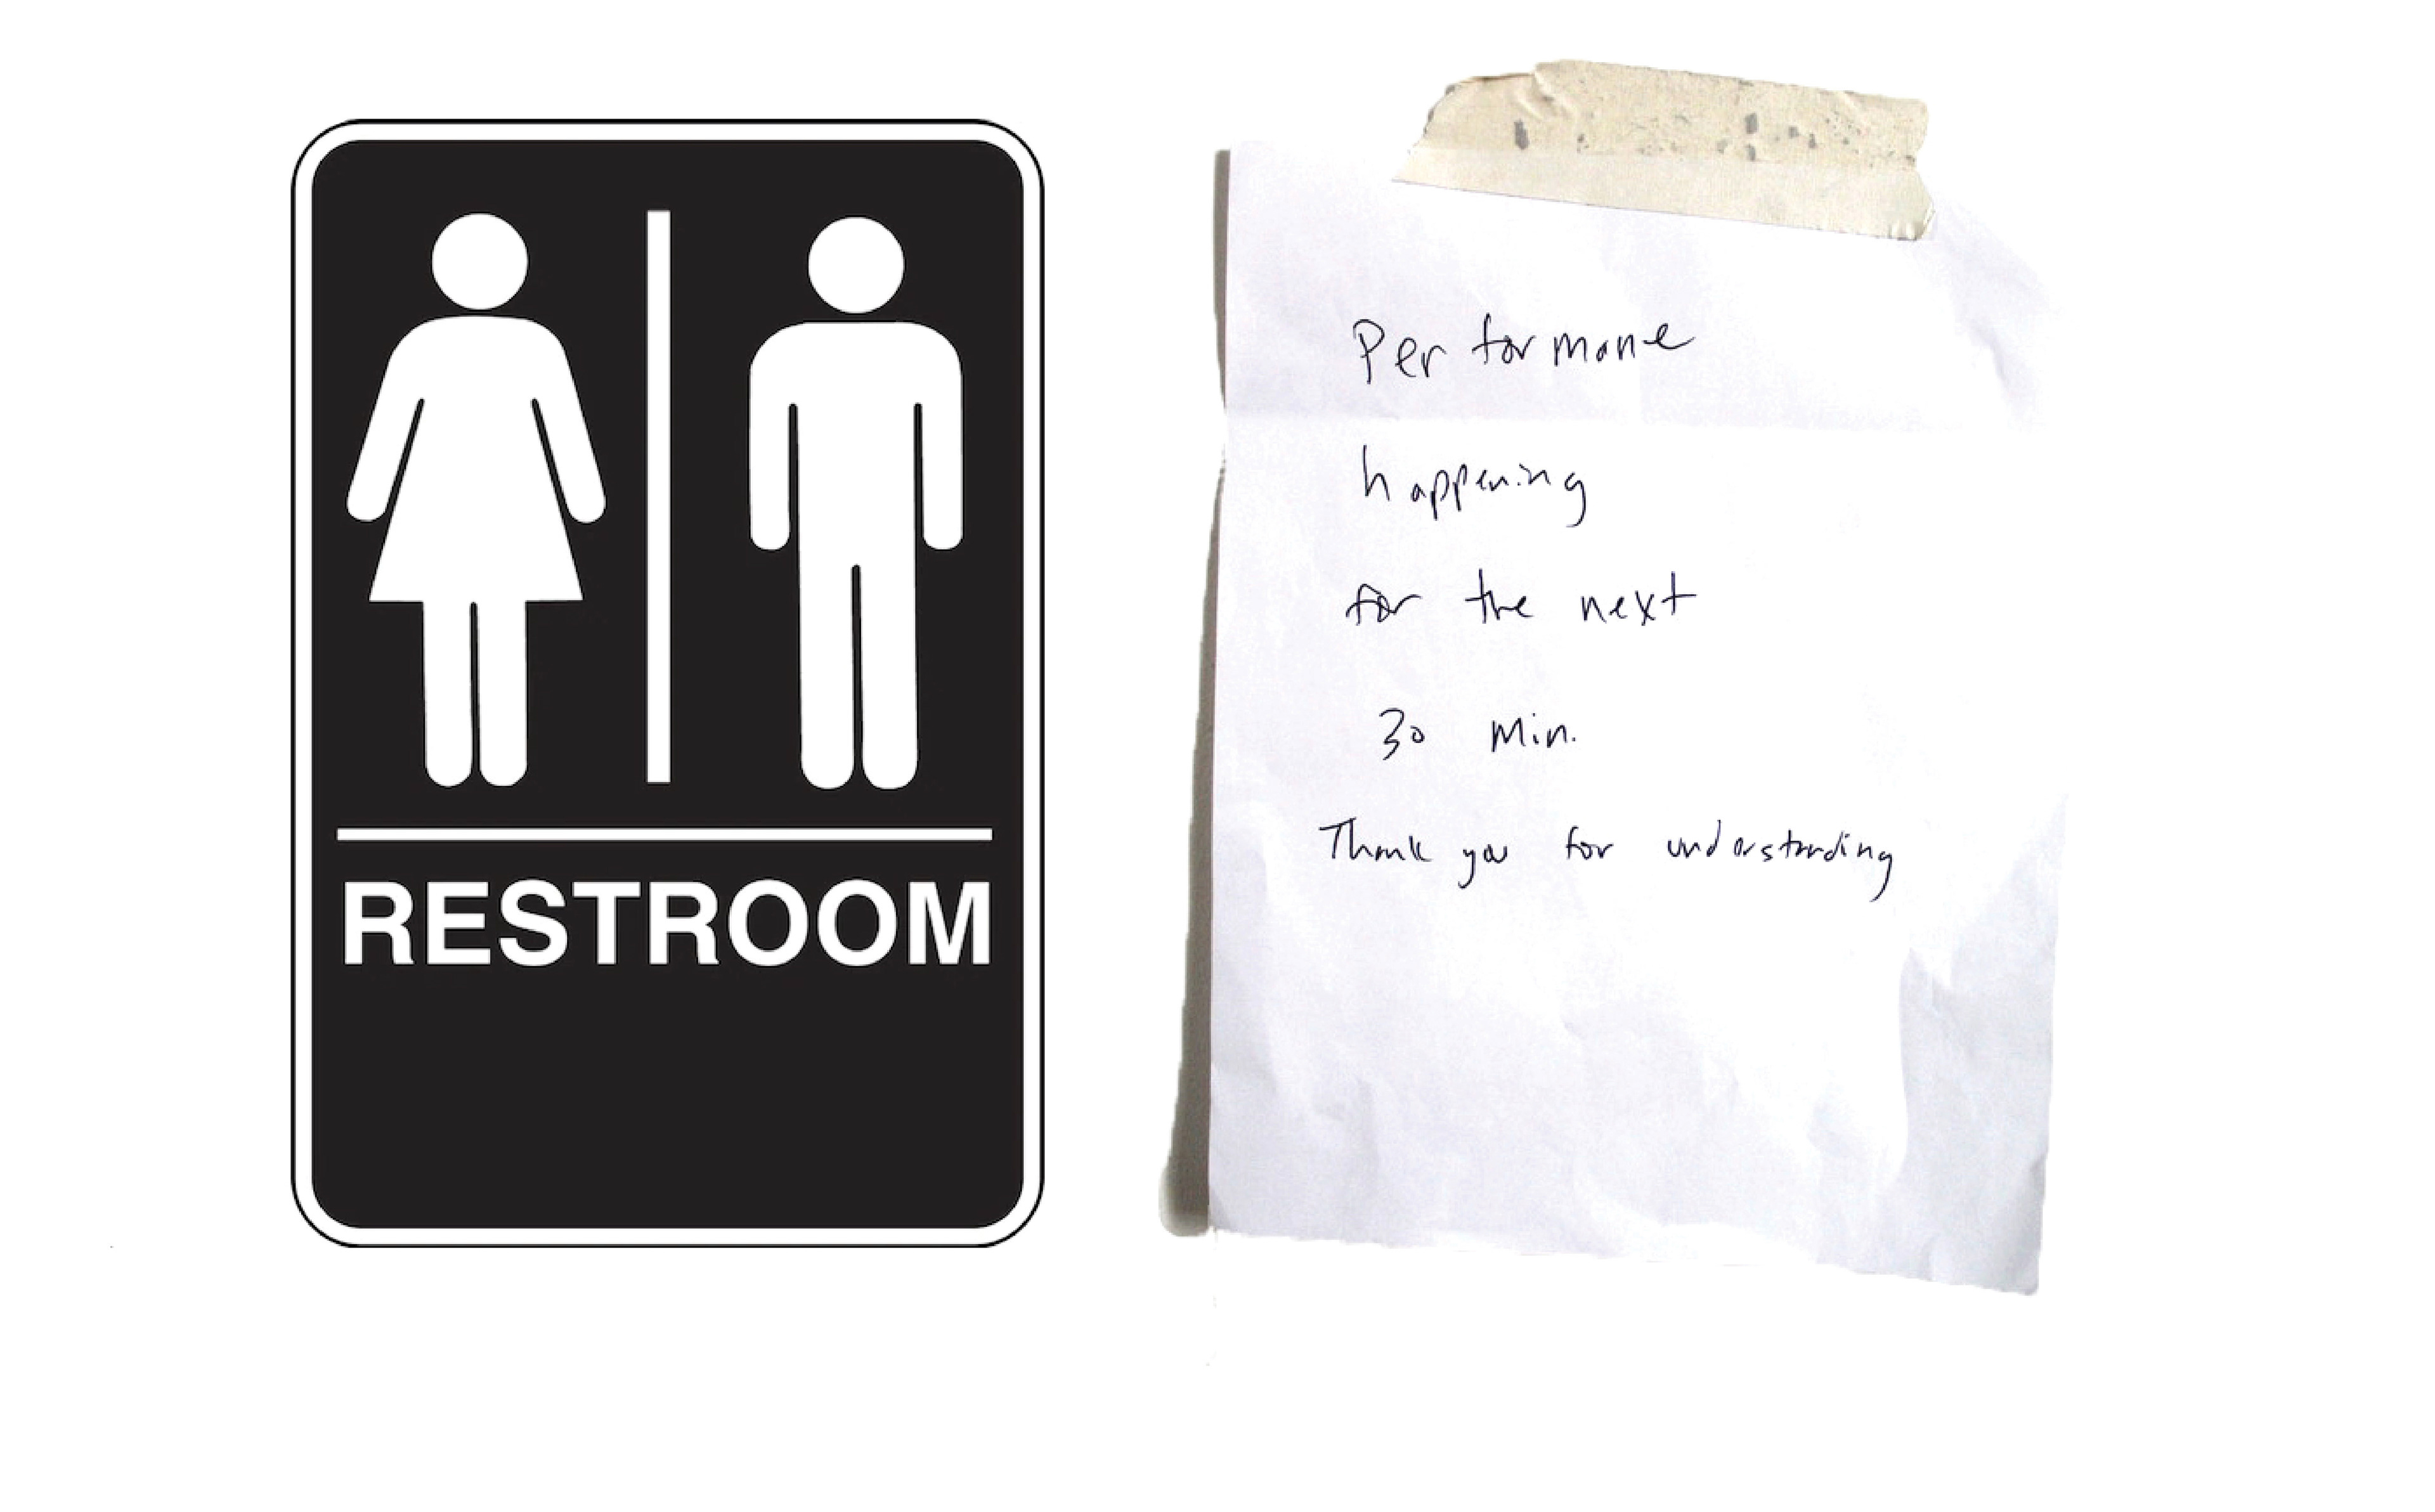 RESTROOM
Performane
happening
for the next
30 Min.
Thank you for understanding